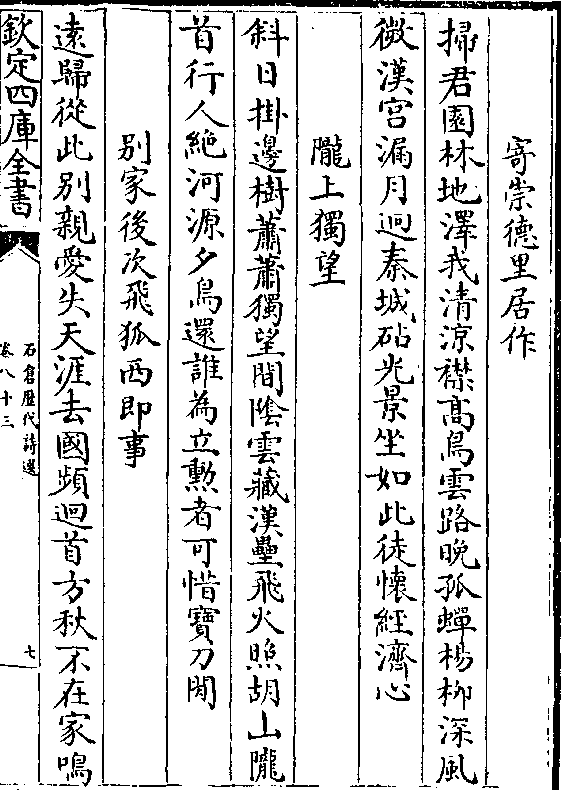 寄崇德里居作
掃君園林地澤我清涼襟髙鳥雲路晚孤蟬楊柳深風
微漢宫漏月迥秦城砧光景坐如此徒懷經濟心
隴上獨望
斜日掛邊樹蕭蕭獨望間隂雲藏漢壘飛火照胡山隴
首行人絶河源夕鳥還誰為立勲者可惜寶刀閒
别家後次飛狐西即事
遠歸從此别親愛失天涯去國頻迴首方秋不在家鳴
欽定四庫全書
石倉歴代詩選
卷八十三
七